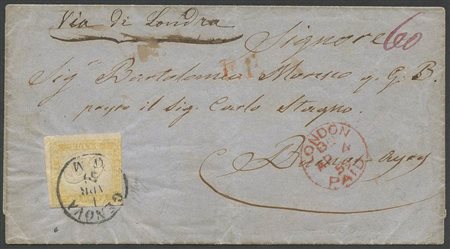 Via di Londra
Signore 60
P.P.
Sig. Bartolomeo Moresco q. G. B.
presso il Sig. Carlo Stagno.
LONDON
PAID
Buenos-Ayres
GENOVA
APR
59
M